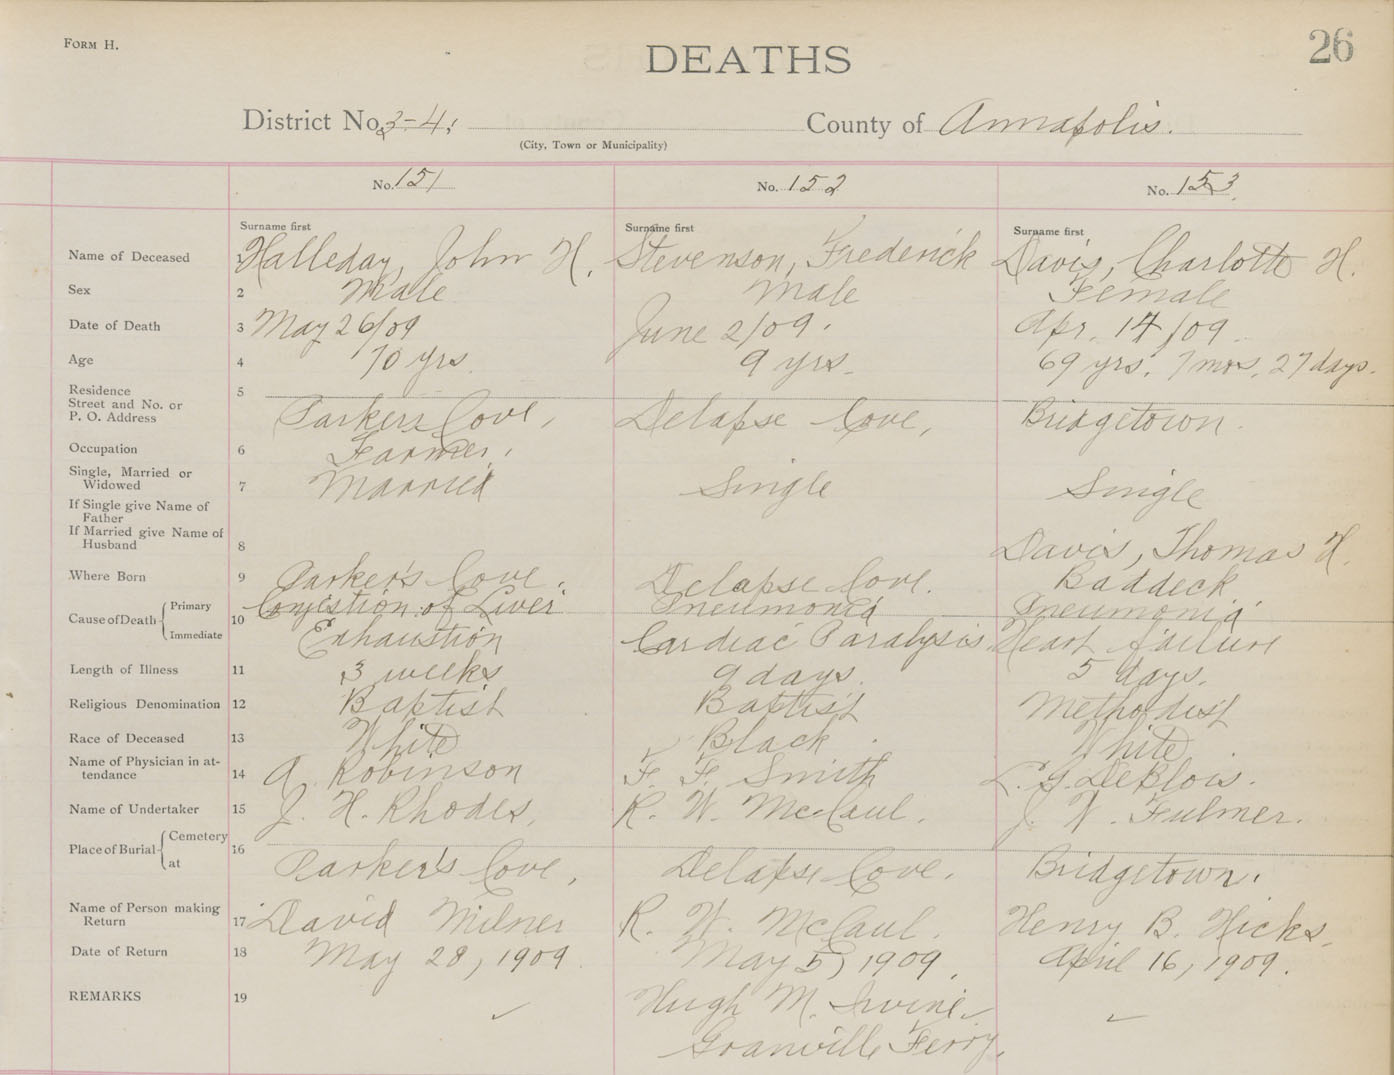 FORM H.
DEATHS
26
District No. 3-4. County of Annapolis.
(City, Town or Municipality)
No. 151 No. 152 No. 153
Surname first Surname first Surname first
Name of Deceased 1 Halleday, John H. Stevenson, Frederick Davis, Charlotte H.
Sex 2 Male Male Female
Date of Death 3 May 26/09 June 2/09. Apr. 14/09
Age 4 70 yrs. 9 yrs. 69 yrs. 7 mos. 27 days.
Residence 5
Street and No. or
P. O. Address Parkers Cove, Delapse Cove, Bridgetown.
Occupation 6 Farmer.
Single, Married or
Widowed 7 Married Single Single
If Single give Name of
Father
If Married give Name of
Husband 8 Davis, Thomas H.
Where Born 9 Parker's Cove. Delapse Cove. Baddeck
Cause of Death Primary 10 Congestion of Liver Pneumonia Pneumonia
Immediate Exhaustion Cardiac Paralysis Heart failure
Length of Illness 11 3 weeks 9 days. 5 days.
Religious Denomination 12 Baptist Baptist Methodist
Race of Deceased 13 White Black. White.
Name of Physician in at-
tendance 14 A. Robinson F. F. Smith L. G. DeBlois.
Name of Undertaker 15 J. H. Rhodes, R. W. McCaul. J. W. Fulmer.
Place of Burial Cemetery 16
at Parker's Cove, Delapse Cove. Bridgetown.
Name of Person making
Return 17 David Milner R. W. McCaul. Henry B. Hicks.
Date of Return 18 May 28, 1909. May 5, 1909. April 16, 1909.
REMARKS 19 Hugh M. Irvine
Granville Ferry.